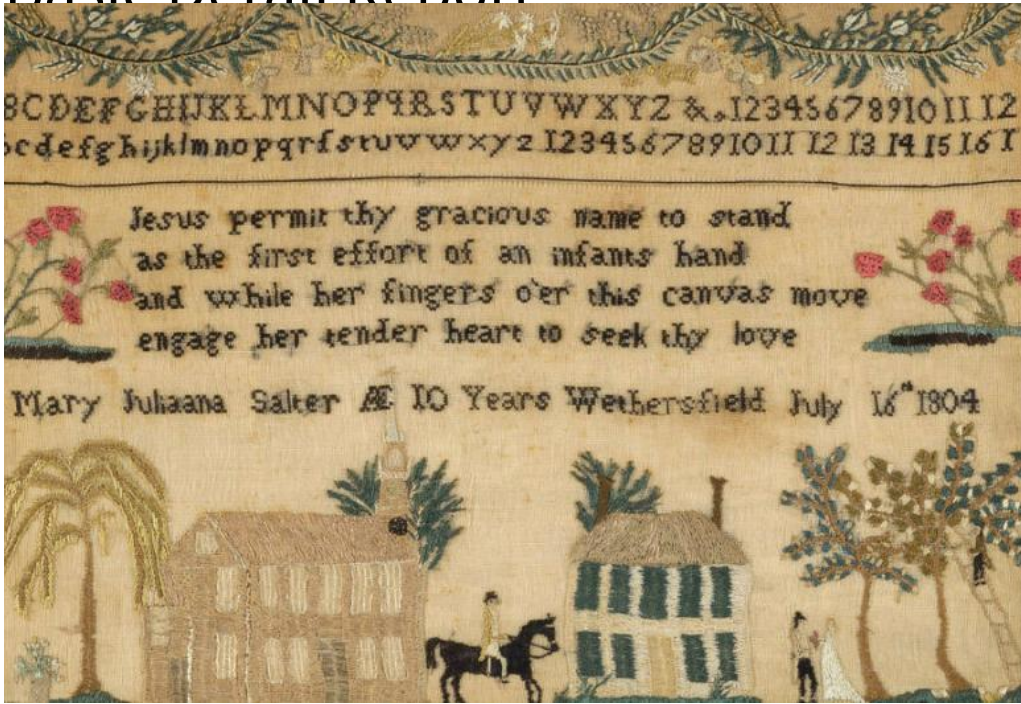 BCDEFGHIJKLMNOPQRSTUVWXYZ &.123456789101112
cdefghijklmnopqrſstuvwxyz 12345678910 11 12 13 14 15 16 1
Jesus permit thy gracious name to stand
as the first effort of an infants hand
and while her fingers o'er this canvas move
engage her tender heart to seek thy love
Mary Juliaana Salter Æ 10 Years Wethersfield July 16th 1804